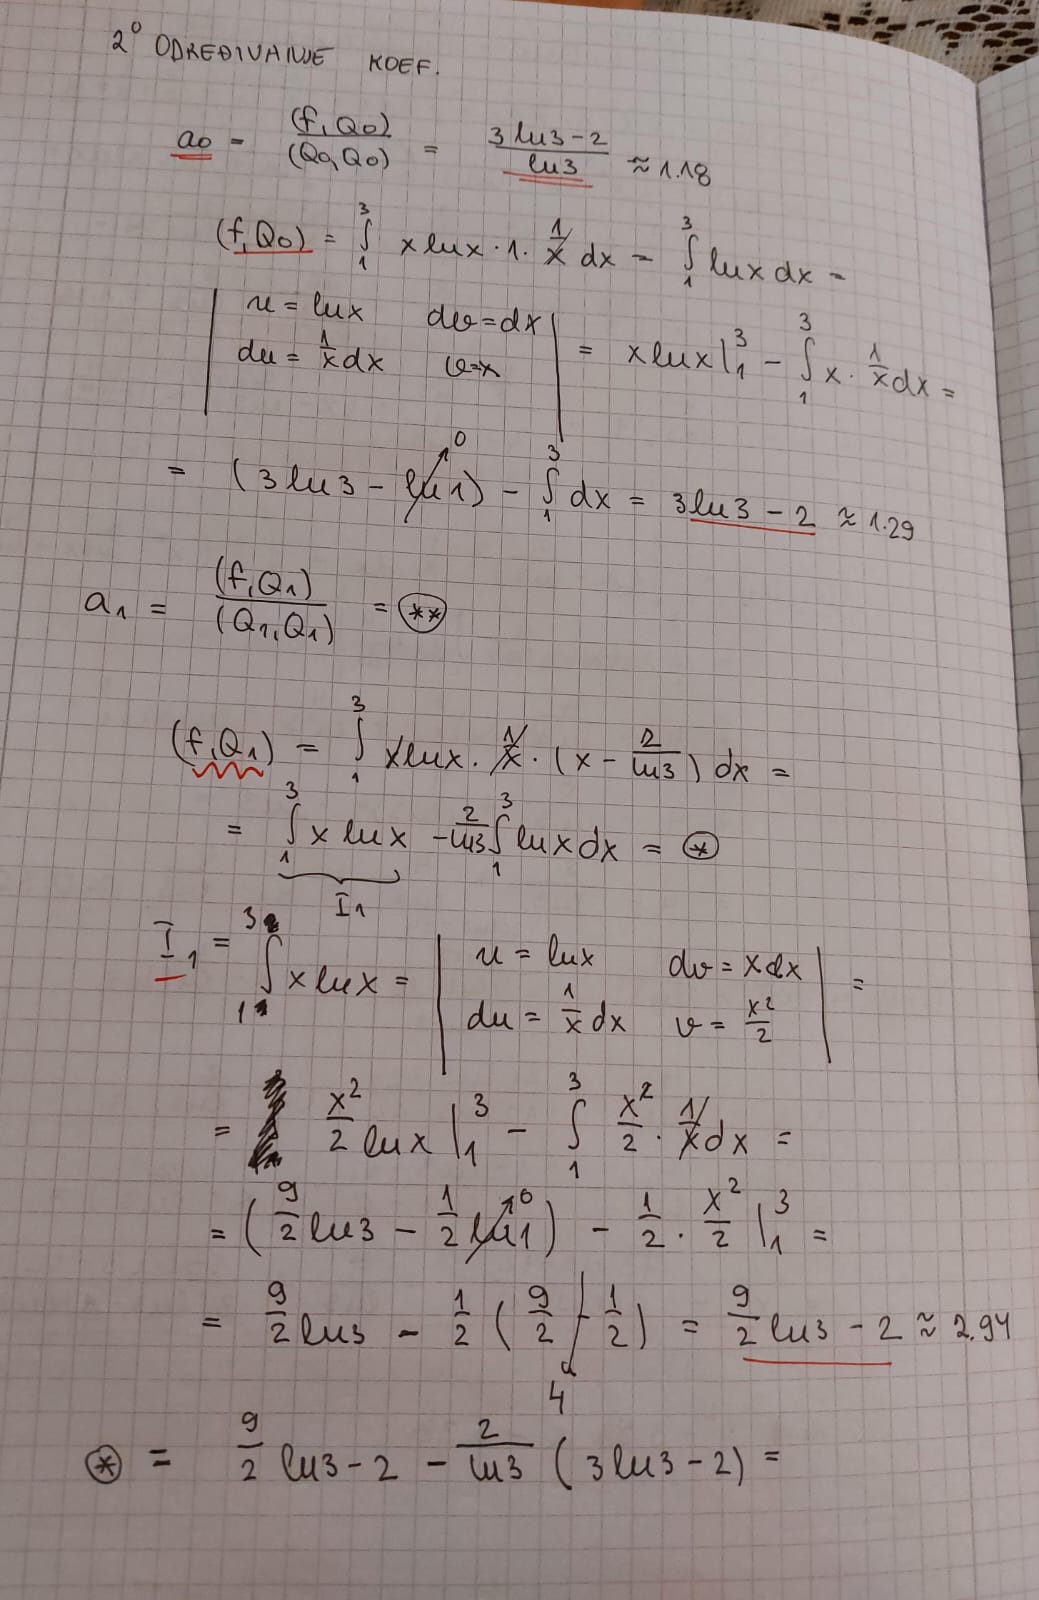 2° ODREĐIVANJE KOEF.
a₀ = (f,Q₀)/(Q₀,Q₀) = (3 ln3 - 2)/ln3 ≈ 1.18
(f,Q₀) = ∫₁³ x lnx · 1 · 1/x dx = ∫₁³ lnx dx =
| u = lnx dv = dx
du = 1/x dx v = x | = x lnx |₁³ - ∫₁³ x · 1/x dx =
= (3 ln3 - ln1) - ∫₁³ dx = 3 ln3 - 2 ≈ 1.29
0
a₁ = (f,Q₁)/(Q₁,Q₁) = (**)
(f,Q₁) = ∫₁³ x lnx · 1/x · (x - 2/ln3) dx =
= ∫₁³ x lnx - 2/ln3 ∫₁³ lnx dx = (*)
I₁
I₁ = ∫₁³ x lnx = | u = lnx dv = x dx
du = 1/x dx v = x²/2 | =
= x²/2 lnx |₁³ - ∫₁³ x²/2 · 1/x dx =
= (9/2 ln3 - 1/2 ln1) - 1/2 · x²/2 |₁³ =
0
= 9/2 ln3 - 1/2 (9/2 - 1/2) = 9/2 ln3 - 2 ≈ 2.94
4
(*) = 9/2 ln3 - 2 - 2/ln3 (3 ln3 - 2) =